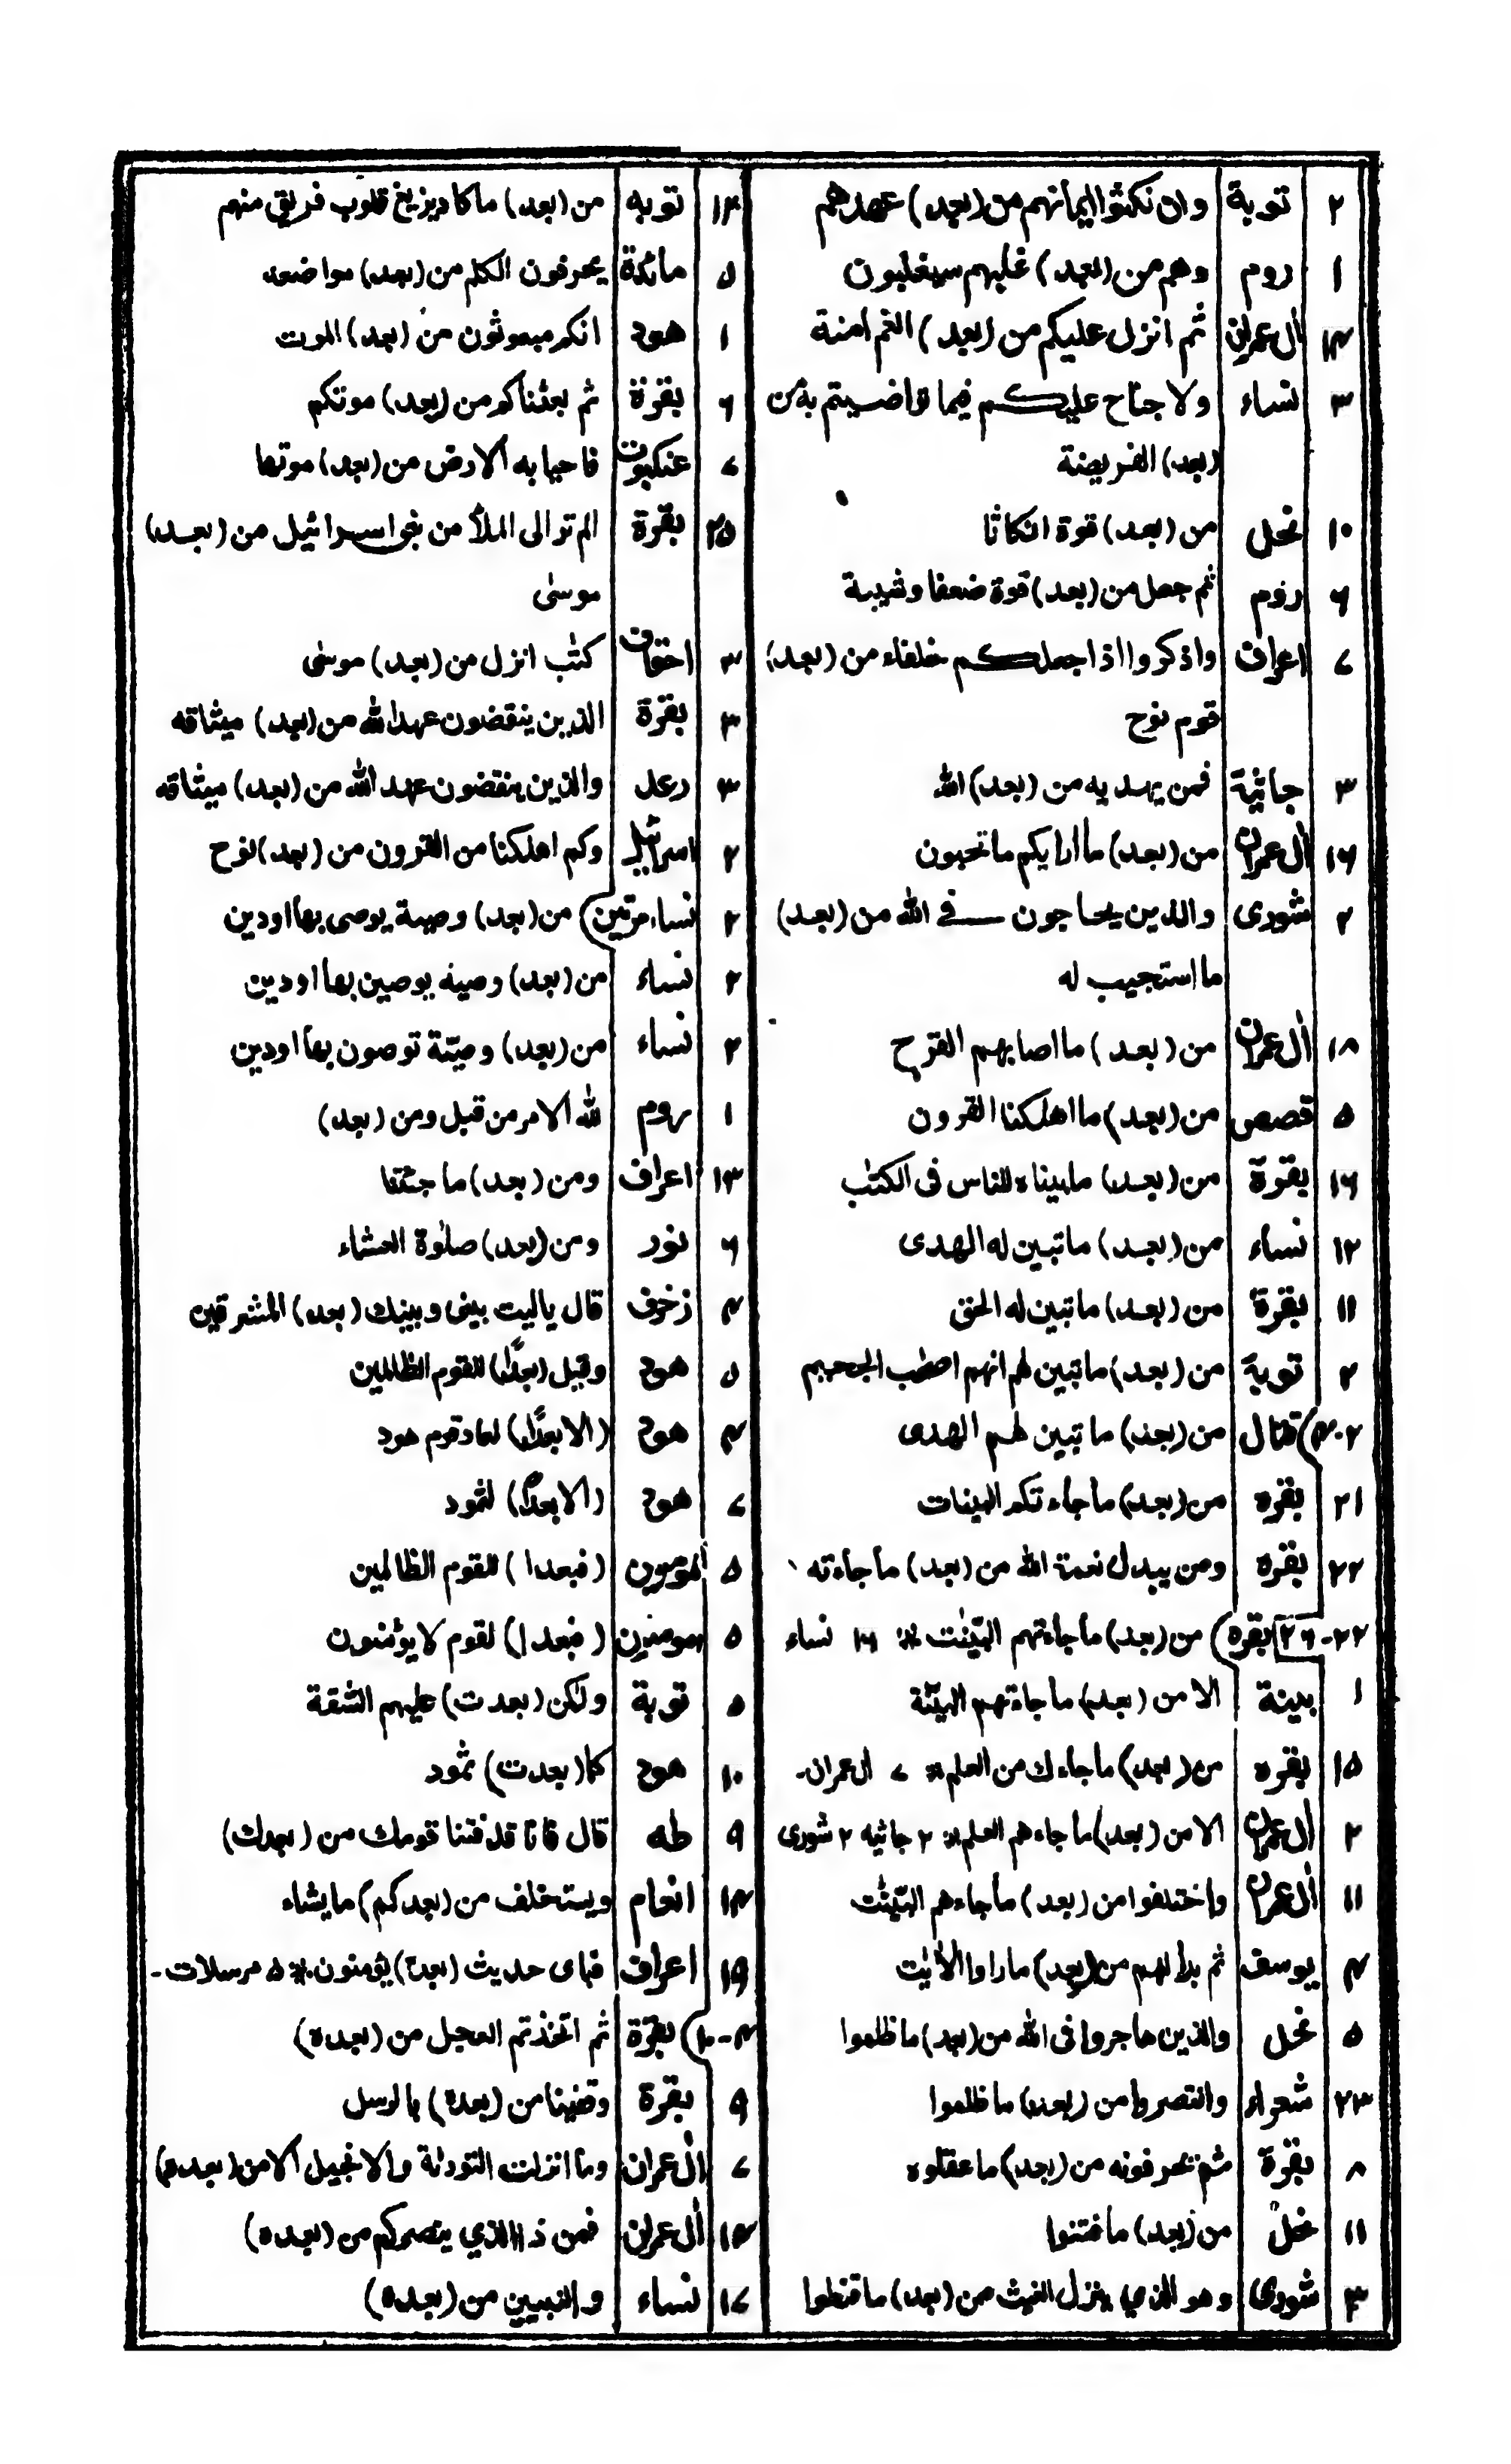 ۲ توبة وان نكثوا ايمانهم من (بعد) عهدهم
۱ روم وهم من (بعد) غلبهم سيغلبون
۱۴ اٰل عمرٰن ثم انزل عليكم من (بعد) الغم امنة
۳ نساء ولا جناح عليكم فيما تراضيتم به من
(بعد) الفريضة
۱۰ نحل من (بعد) قوة انكاثا
۶ روم ثم جعل من (بعد) قوة ضعفا وشيبة
۷ اعراف واذكروا اذ جعلكم خلفاء من (بعد)
قوم نوح
۳ جاثية فمن يهديه من (بعد) الله
۱۶ اٰل عمران من (بعد) ما أرايكم ما تحبون
۲ شورى والذين يحاجون فے الله من (بعد)
ما استجيب له
۱۸ اٰل عمران من (بعد) ما اصابهم القرح
۵ قصص من (بعد) ما اهلكنا القرون
۱۶ بقرة من (بعد) ما بيناه للناس فى الكتٰب
۱۲ نساء من (بعد) ما تبين له الهدى
۱۱ بقرة من (بعد) ما تبين له الحق
۲ توبة من (بعد) ما تبين لهم انهم اصحٰب الجحيم
۲-۴ قتال من (بعد) ما تبين لهم الهدى
۲۱ بقره من (بعد) ما جاءتكم البينات
۲۲ بقره ومن يبدل نعمة الله من (بعد) ما جاءته
۲۲-۲۶ بقره من (بعد) ما جاءتهم البيّنٰت ؞ ۱۶ نساء
۱ بينة الا من (بعد) ما جاءتهم البيّنة
۱۵ بقره من (بعد) ما جاءك من العلم ؞ ۷ ال عمران-
۲ اٰل عمران الا من (بعد) ما جاءهم العلم ؞ ۲ جاثيه ۲ شورى
۱۱ اٰل عمران واختلفوا من (بعد) ما جاءهم البيّنٰت
۴ يوسف ثم بدا لهم من (بعد) ما راوا الاٰيٰت
۵ نحل والذين هاجروا فى الله من (بعد) ما ظلموا
۲۳ شعراء وانتصروا من (بعد) ما ظلموا
۸ بقرة ثم يحرفونه من (بعد) ما عقلوه
۱۱ نحل من (بعد) ما فتنوا
۳ شورى وهو الذي ينزل الغيث من (بعد) ما قنطوا
۱۴ توبه من (بعد) ما كاد يزيغ قلوب فريق منهم
۵ مائدة يحرفون الكلم من (بعد) مواضعه
۱ هود انكم مبعوثون من (بعد) الموت
۶ بقرة ثم بعثناكم من (بعد) موتكم
۷ عنكبوت فاحيا به الارض من (بعد) موتها
۲۵ بقرة الم تر الى الملأ من بنى اسرائيل من (بعد)
موسٰى
۴ احقاف كتٰب انزل من (بعد) موسٰى
۳ بقرة الذين ينقضون عهد الله من (بعد) ميثاقه
۳ رعد والذين ينقضون عهد الله من (بعد) ميثاقه
۲ اسرائيل وكم اهلكنا من القرون من (بعد) نوح
۲ نساء مرتين من (بعد) وصية يوصى بها اودين
۲ نساء من (بعد) وصية يوصين بها اودين
۲ نساء من (بعد) وصيّة توصون بها اودين
۱ روم لله الامر من قبل ومن (بعد)
۱۳ اعراف ومن (بعد) ما جئتنا
۶ نور ومن (بعد) صلٰوة العشاء
۴ زخرف قال ياليت بينى وبينك (بعد) المشرقين
۵ هود وقيل (بعدًا) للقوم الظالمين
۴ هود (الا بعدًا) لعاد قوم هود
۷ هود (الا بعدًا) لثمود
۵ المومنون (فبعدا) للقوم الظالمين
۵ مومنون (فبعدا) لقوم لا يؤمنون
۵ توبة ولكن (بعدت) عليهم الشقة
۱۰ هود كما (بعدت) ثمود
۹ طه قال فانا قد فتنا قومك من (بعدك)
۱۴ انعام ويستخلف من (بعدكم) ما يشاء
۱۹ اعراف فباى حديث (بعده) يؤمنون ؞ ۵ مرسلات-
۴-۱۰ بقرة ثم اتخذتم العجل من (بعده)
۹ بقرة وقفينا من (بعده) بالرسل
۷ اٰل عمران وما انزلت التورٰىة والانجيل الا من (بعده)
۱۴ اٰل عمرٰن فمن ذا الذي ينصركم من (بعده)
۱۷ نساء والنبيين من (بعده)